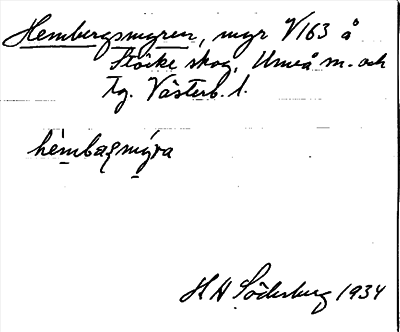 Hembergsmyren, myr V163 å
Stöcke skog, Umeå m. och
tg. Västerb. l.
hembaʂmýra
H H Söderberg 1934